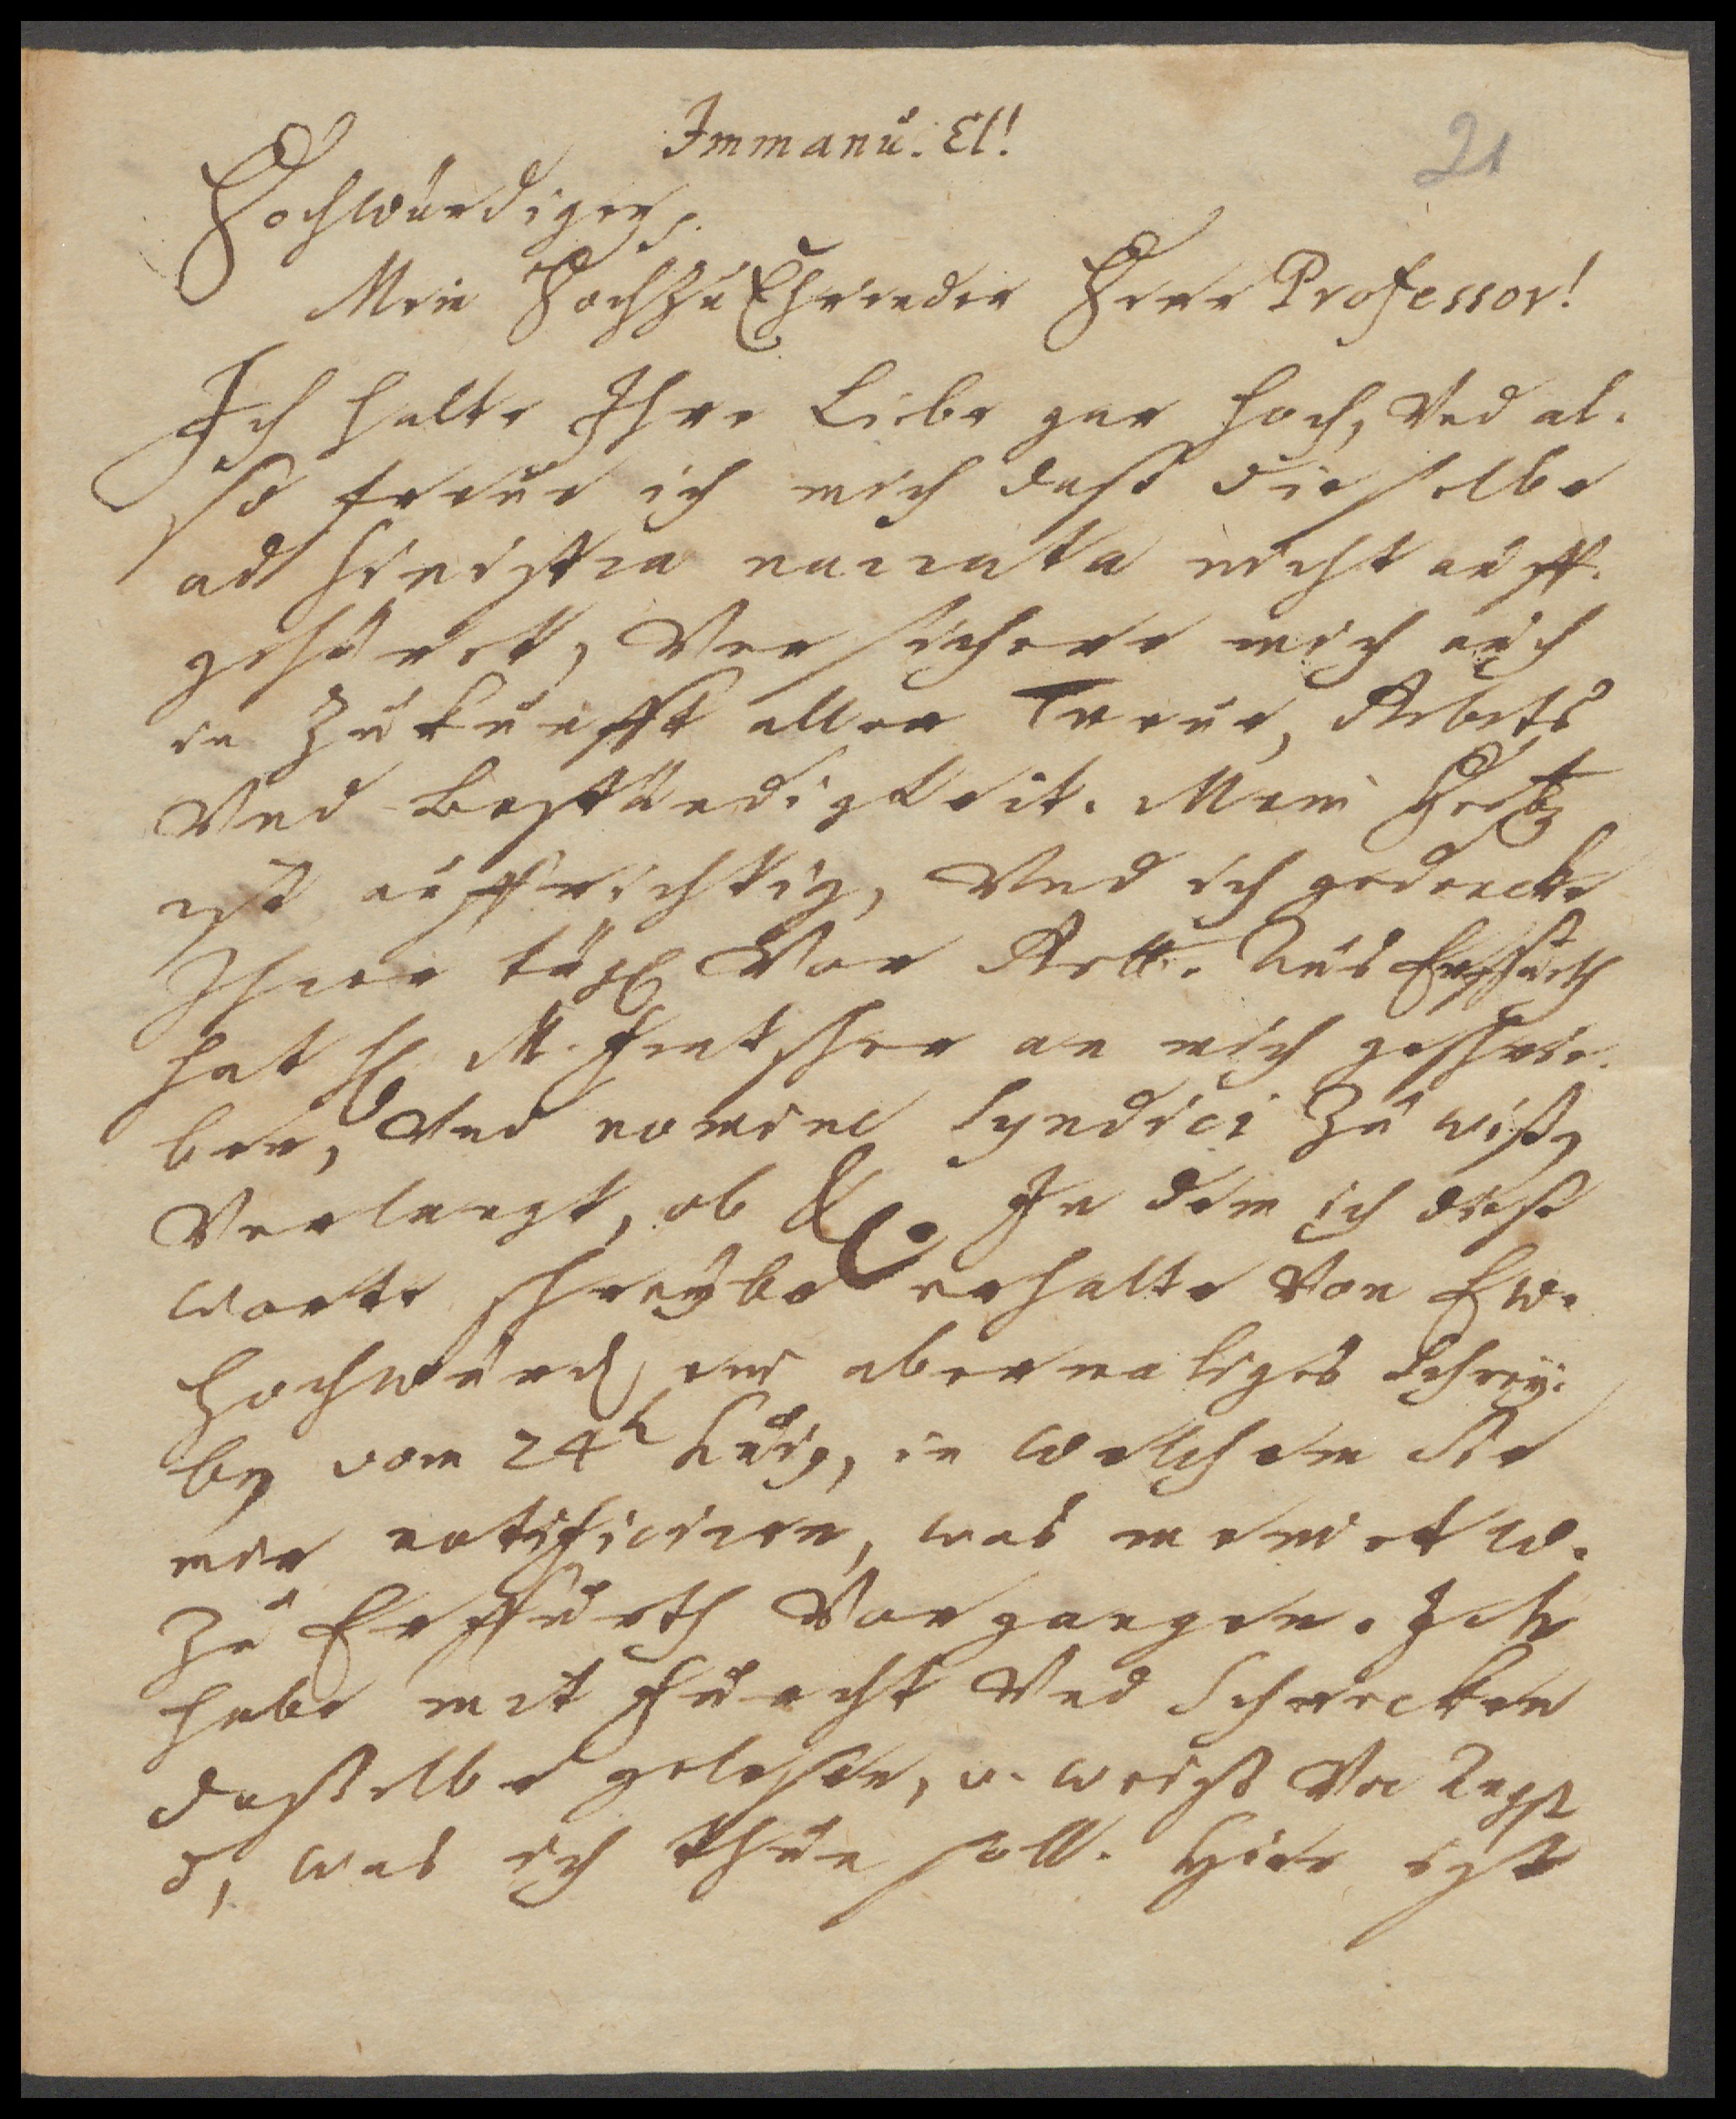 Immanu. El!
21
Hochwürdiger,
Mein HochzuEhrender Herr Professor!
Ich halte Ihre Liebe gar hoch, Vnd al-
so freue ich mich daß dieselbe
ad sinistra narrata nicht auff-
gehöret, Versichere mich auch
in Zukunfft aller Treue,
Vnd Beständigkeit. Mein Hertz
ist auffrichtig, Vnd ich gedencke
Ihrer tägl Vor Gott. Aus Erffurth
hat H M. an mich geschrie-
ben, Vnd nomine Syndici Zu wißen
Verlangt, ob &c. In dem ich diese
worte schreybe erhalte Von Ew.
Hochwürd, ein abermaliges Schrey-
ben vom 24 in welchem Sie
mir notificiren, was
Zu Erffurth Vorgangen. Ich
habe mit Furcht Vnd Schrecken
dasselbe gelesen, u. weiß Vor Angst
was ich thun soll. Hier ist